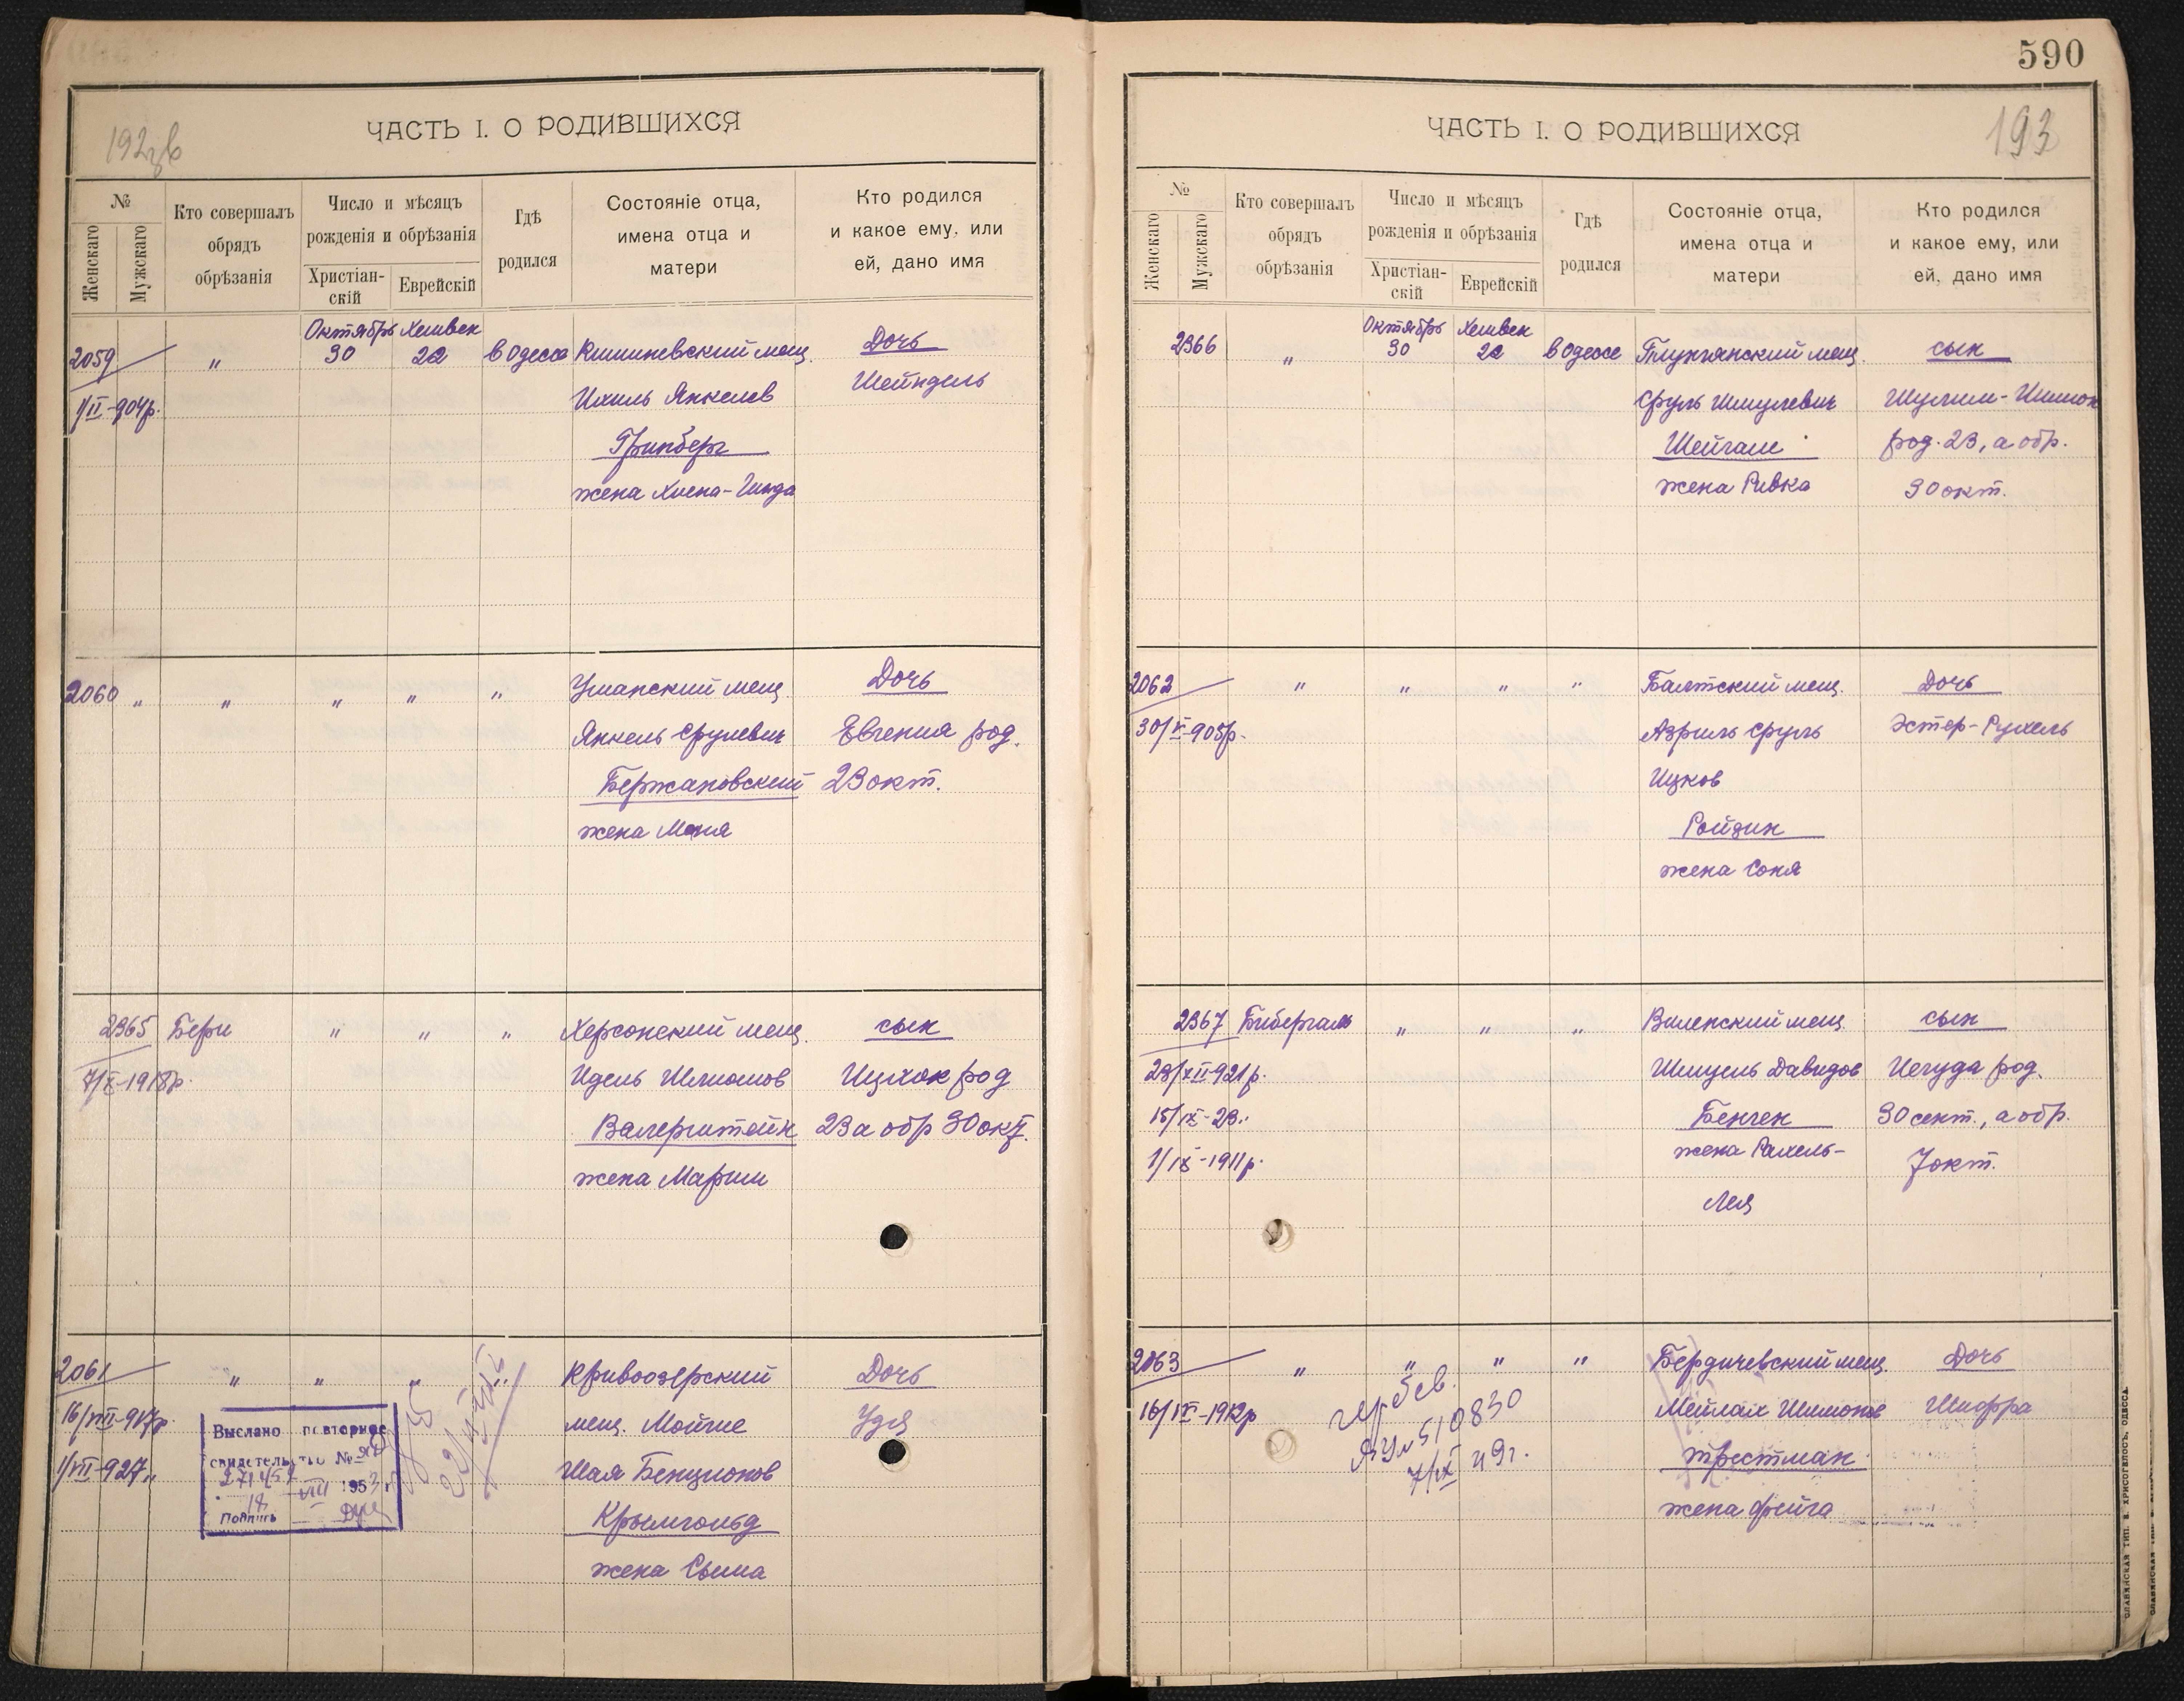 590
192 об
ЧАСТЬ I. О РОДИВШИХСЯ
№
Женскаго
Мужскаго
Кто совершалъ
обрядъ
обрѣзанія
Число и мѣсяцъ
рожденія и обрѣзанія
Христіан-
скій
Еврейскій
Гдѣ
родился
Состояніе отца,
имена отца и
матери
Кто родился
и какое ему, или
ей, дано имя
Октябрь Хешвен
2059 " 30 22 в Одессе Кишиневский мещ. Дочь
1/II-904р. Ихиль Янкелев Шейндель
Гринберг
жена Хиена-Гинда
2060 " " " " " Уманский мещ. Дочь
Янкель Срулевич Евгения род.
Бержановский 23 окт.
жена Маня
2365 Бери " " " Херсонский мещ. сын
7/X-1918р. Идель Шлиомов Ицхок род
Валерштейн 23 а обр 30 окт.
жена Мариш
2061 " " " " Кривоозерский Дочь
16/VII-917р. мещ. Мойше Удя
1/VII-927" Шая Бенционов
Крымгольд
жена Сыма
Выслано повторное
свидетельство №
18 VIII 1953 г
Подпись
193
ЧАСТЬ I. О РОДИВШИХСЯ
№
Женскаго
Мужскаго
Кто совершалъ
обрядъ
обрѣзанія
Число и мѣсяцъ
рожденія и обрѣзанія
Христіан-
скій
Еврейскій
Гдѣ
родился
Состояніе отца,
имена отца и
матери
Кто родился
и какое ему, или
ей, дано имя
Октябрь Хешвен
2366 " 30 22 в Одессе мещ. сын
Сруль Шмулевич Шулим-Шимон
Шейгам род. 23, а обр.
жена Ривка 30 окт.
2062 " " " " Балтский мещ. Дочь
30/X-905р. Азриль Сруль Эстер-Рухель
Ицков
Ройзин
жена Соня
2367 Бибергаль " " " Виленский мещ. сын
28/XII-921р. Шмуель Давидов Иегуда род.
15/IX-23" Бенчен 30 сент., а обр.
1/IX-1911р. жена Рахель- 7 окт.
Лея
2063 " " " " Бердичевский мещ. Дочь
16/IX-1912р Мейлах Шимонов Шифра
Трестман
жена Фейга
510830
СЛАВЯНСКАЯ ТИП. Е. ХРИСОГЕЛОСЪ, ОДЕССА.